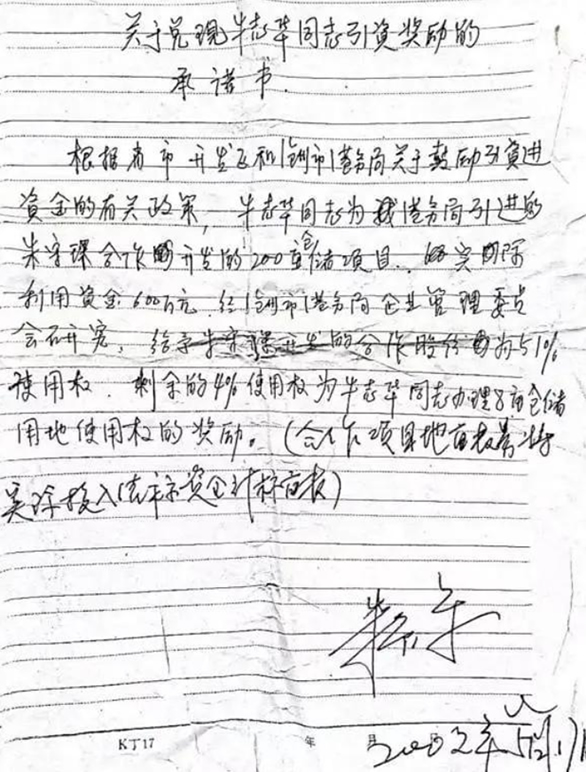 关于兑现牛志华同志引资奖励的
承诺书
根据省市开发区和市港务局关于鼓励引资进
资金的有关政策，牛志华同志为我港务局引进的
朱守琛合作开发的200亩仓储项目，实际
利用资金600万元，经市港务局企业管理委员
会研究，给予朱守琛开发的合作股份为51%
使用权，剩余的4%使用权为牛志华同志办理8亩仓储
用地使用权的奖励。（合作项目地亩
实际投入资金
KT17 年 月
2002年